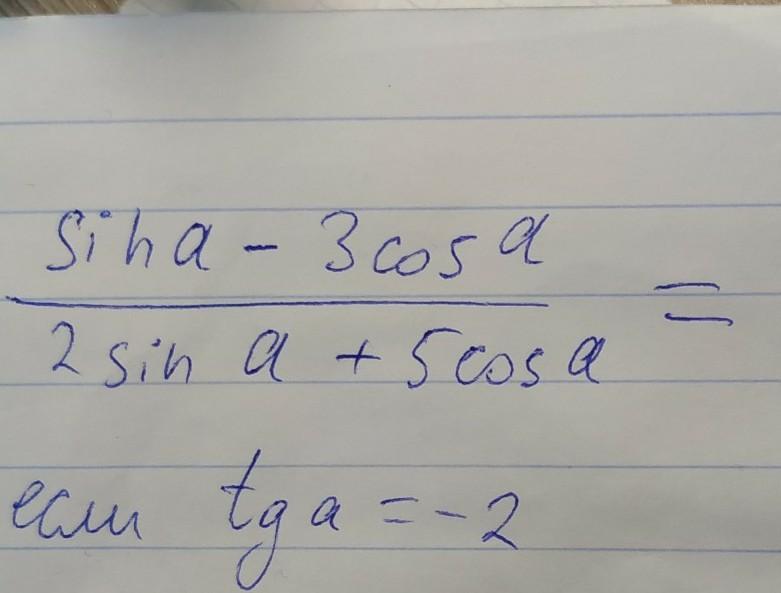 sin a - 3 cos a
2 sin a + 5 cos a =
если tg a = -2